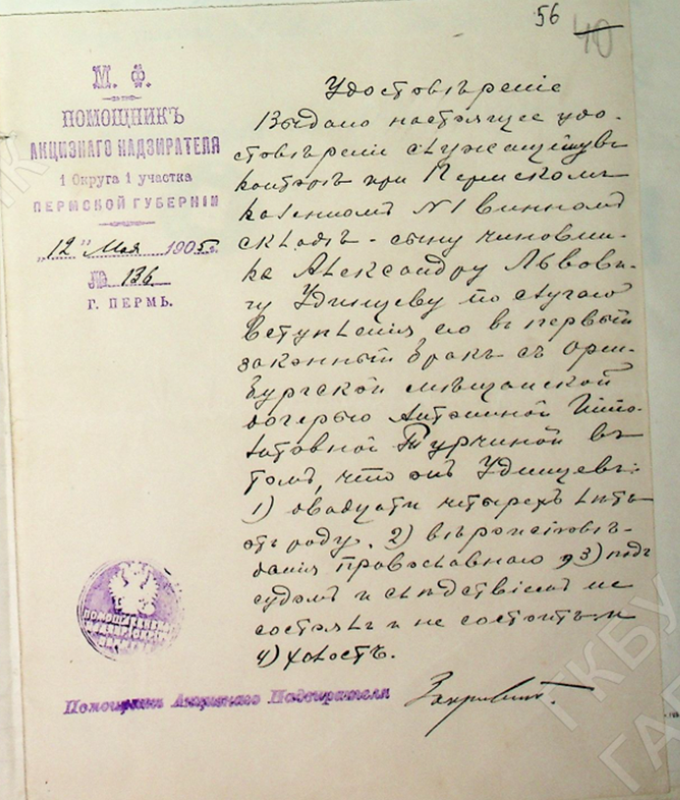 56
40
М. Ф.
ПОМОЩНИКЪ
АКЦИЗНАГО НАДЗИРАТЕЛЯ
1 Округа 1 участка
ПЕРМСКОЙ ГУБЕРНІИ
„12" Мая 1905 г.
№ 136
Г. ПЕРМЬ.
Удостовѣреніе
Выдано настоящее удо-
стовѣреніе служащему въ
конторѣ при Пермскомъ
казенномъ №1 винномъ
складѣ - сыну чиновни-
ка Александру Львови-
чу Удинцеву по случаю
вступленія его въ первый
законный бракъ съ Орен-
бургской мѣщанской
дочерью Антониной Иппо-
литовной Турчиной въ
томъ, что онъ Удинцевъ:
1) двадцати четырехъ лѣтъ
отъ роду, 2) вѣроисповѣ-
данія Православнаго, 3) подъ
судомъ и слѣдствіемъ не
состоялъ и не состоитъ и
4) холостъ.
Помощникъ Акцизнаго Надзирателя
ГКБУ